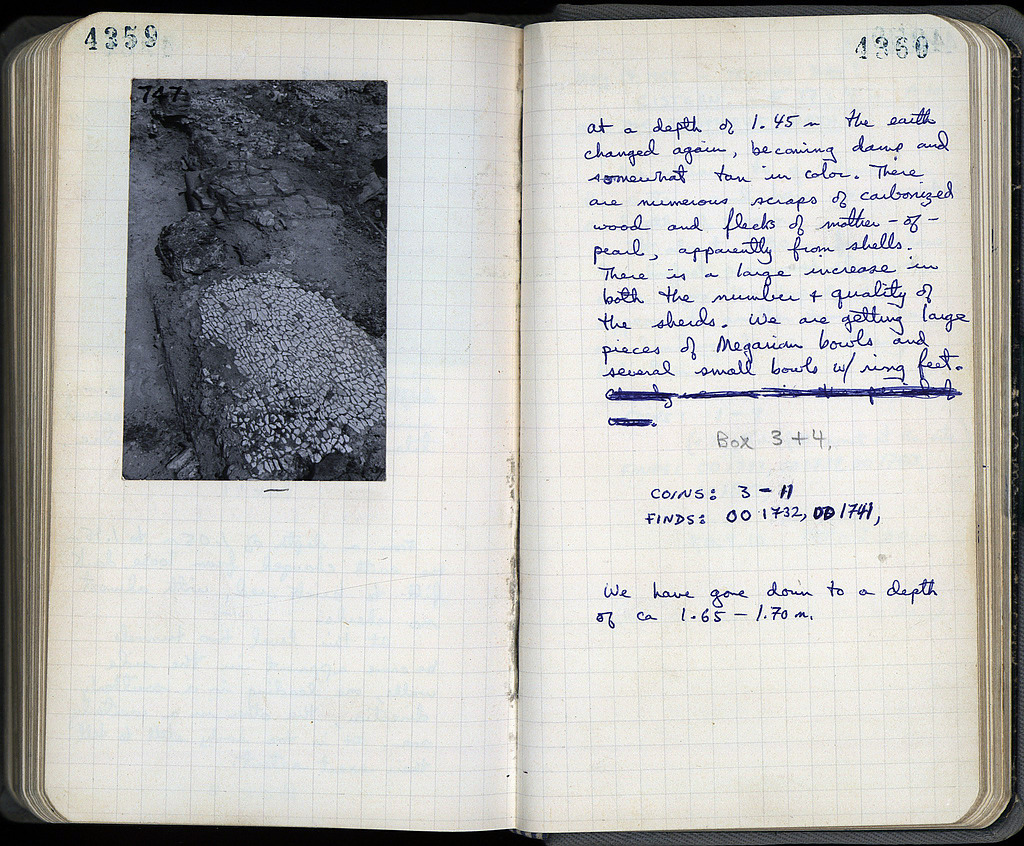 4359
747
4360
at a depth of 1.45 m the earth
changed again, becoming damp and
somewhat tan in color. There
are numerous scraps of carbonized
wood and flecks of mother-of-
pearl, apparently from shells.
There is a large increase in
both the number + quality of
the sherds. We are getting large
pieces of Megarian bowls and
several small bowls w/ ring feet.
Box 3+4,
COINS: 3 - 11
FINDS: OO 1732, OO 1741,
We have gone down to a depth
of ca 1.65 – 1.70 m.